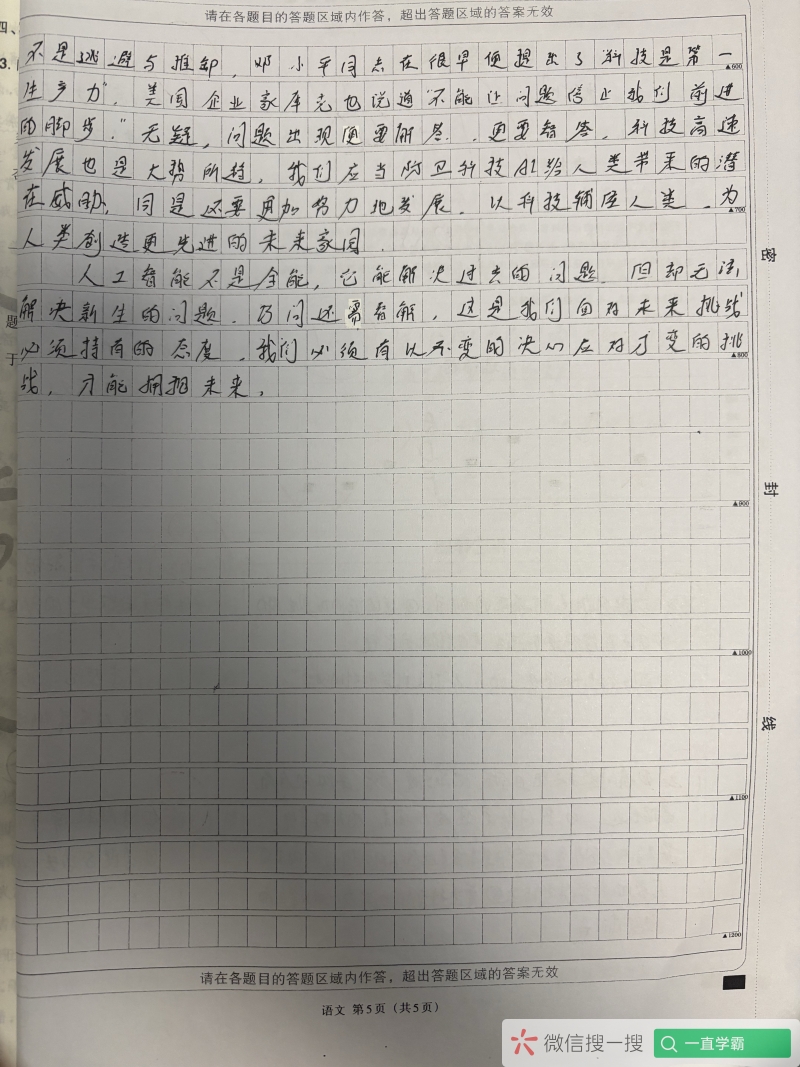 请在各题目的答题区域内作答，超出答题区域的答案无效
四、
3.
不是逃避与推卸，邓小平同志在很早便提出了"科技是第一
▲600
生产力"，美国企业家库克也说道"不能让问题停止我们前进
的脚步。"无疑，问题出现更要解答，更要智答，科技高速
发展也是大势所趋，我们应当防卫科技AI给人类带来的潜
在威胁，同是还要更加努力地发展，以科技辅座人类，为
▲700
人类创造更先进的未来家园。
人工智能不是全能，它能解决过去的问题，但却无法
解决新生的问题，仍问还需智解，这是我们面对未来挑战
题
必须持有的态度，我们必须有以不变的决心应对才变的挑
于
▲800
战，才能拥抱未来。
▲900
▲1000
▲1100
▲1200
密
封
线
请在各题目的答题区域内作答，超出答题区域的答案无效
语文 第5页（共5页）
微信搜一搜
一直学霸